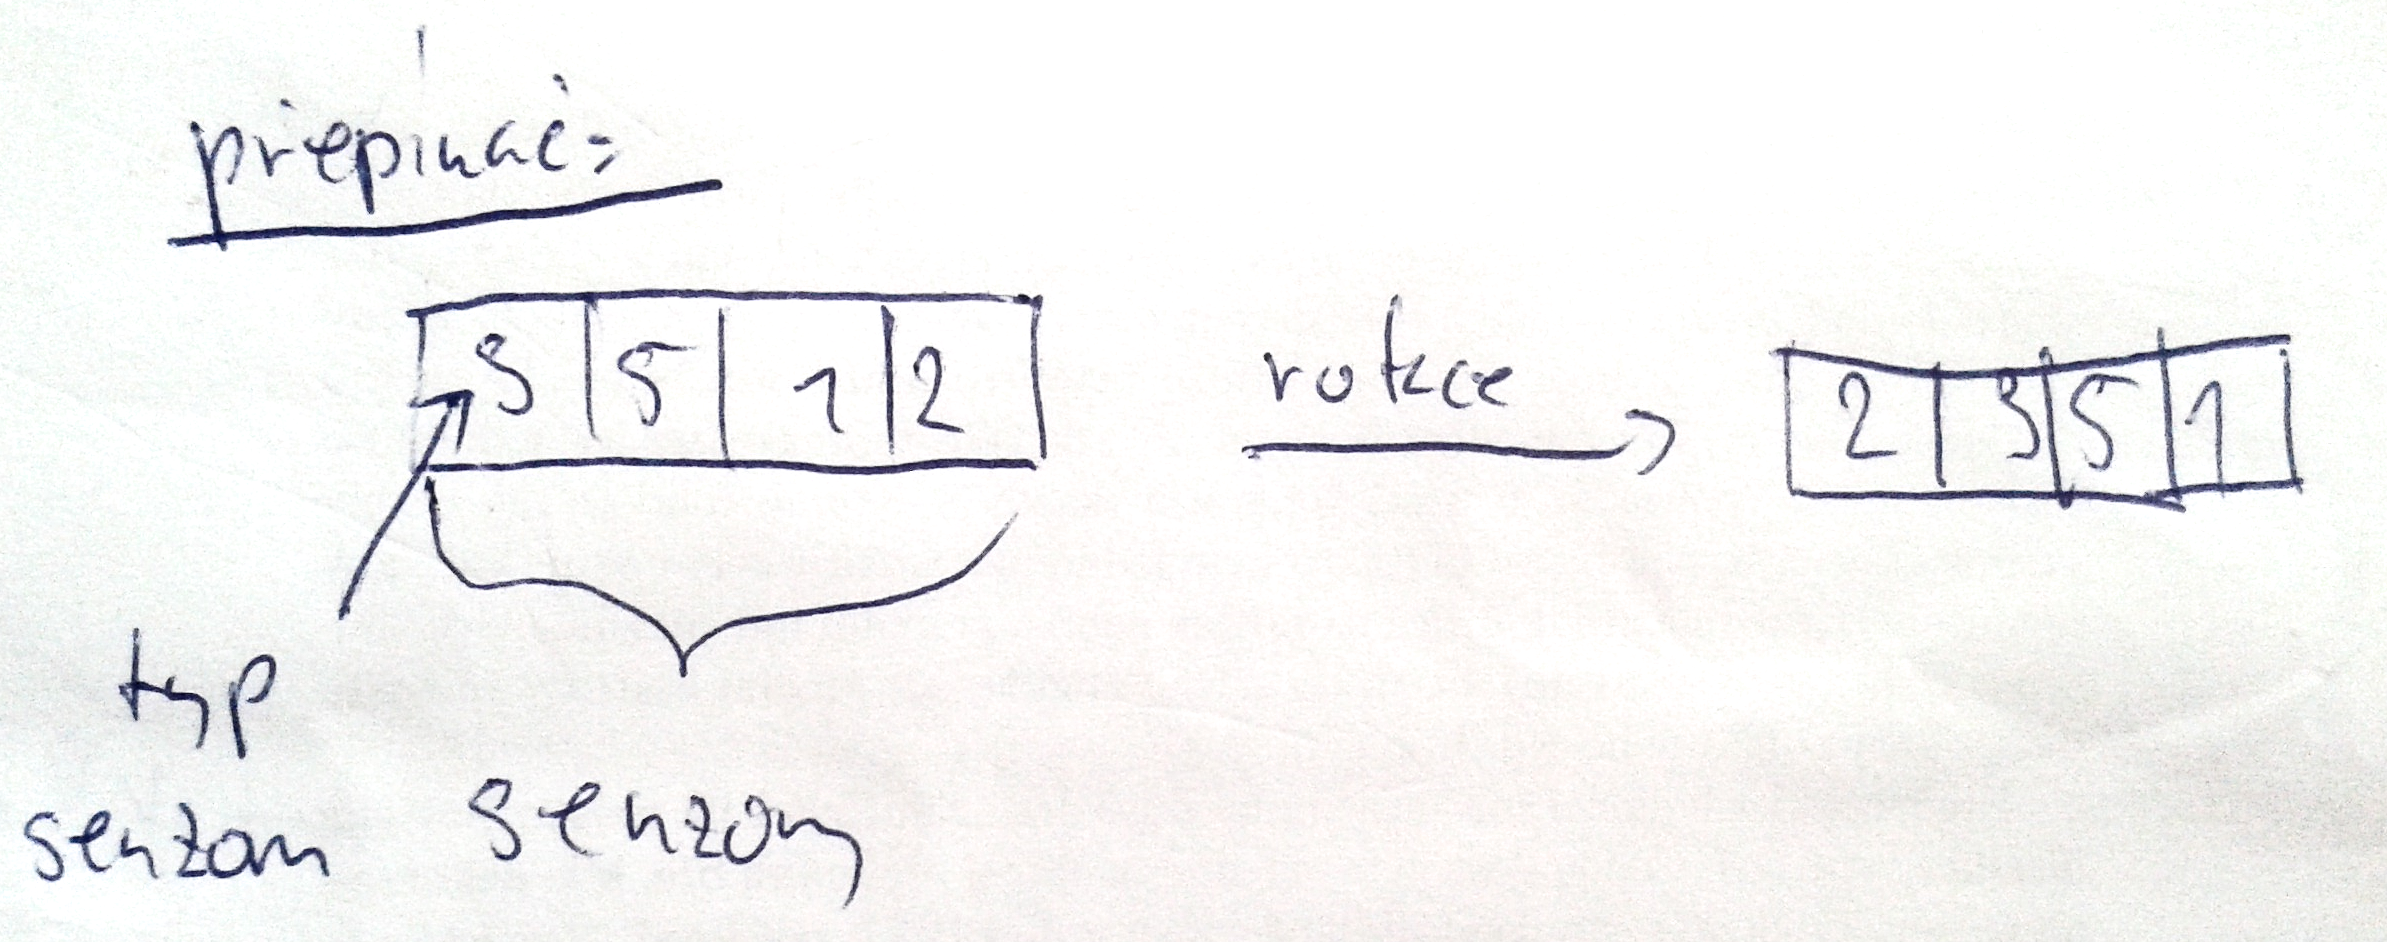 přepínač:
3 5 1 2
rotace
2 3 5 1
typ
senzoru
senzory